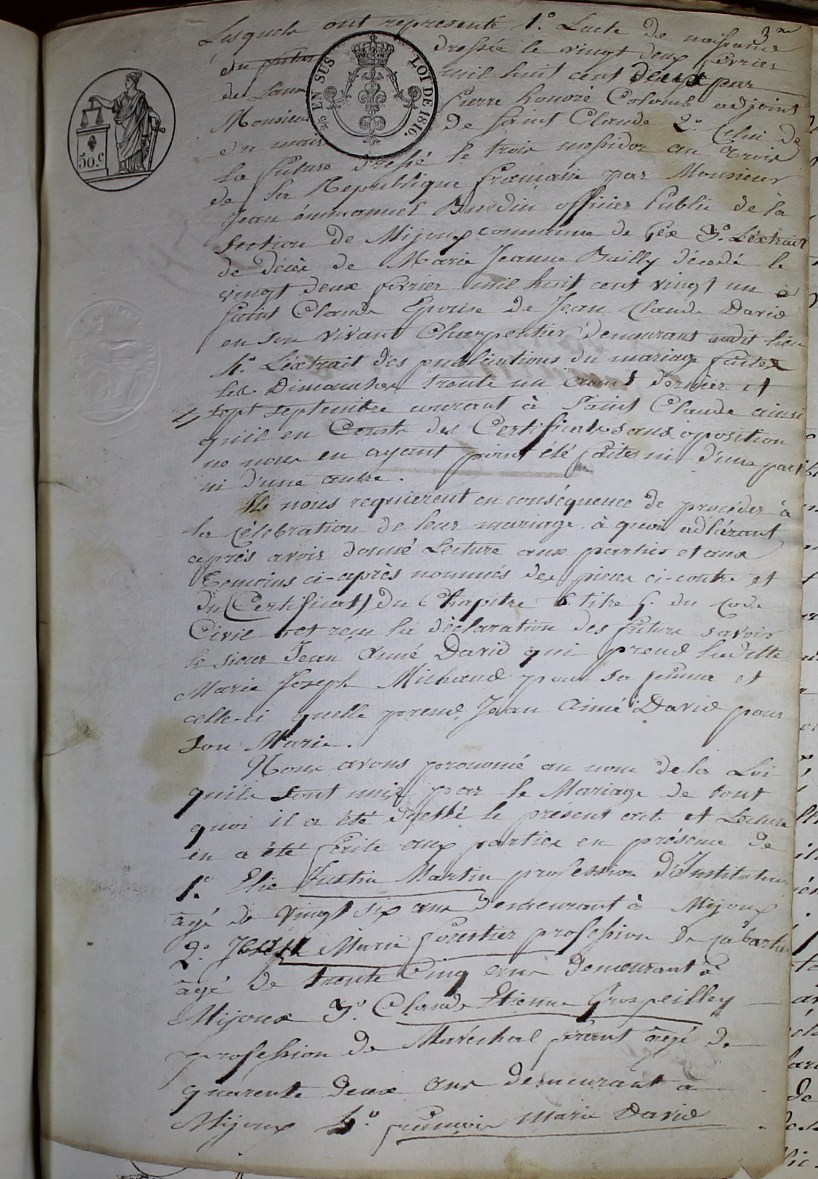 3e
Lesquels ont représenté 1º Lacte de naissance
du futur dressée le vingt deux février
de Lan mil huit cent deux par
Monsieur Pierre honoré Colomb adjoint
du maire de Saint Claude 2º Celui de
la future dressé le trois messidor an trois
de la République française par Monsieur
Jean Emmanuel officier Public de la
Section de Mijoux commune de Gex 3º Léxtrait
de décès de Marie Jeanne Bailly décédé le
vingt deux février mil huit cent vingt un à
Saint Claude Epouse de Jean Claude David
en son vivant Charpentier demeurant audit lieu
4º Léxtrait des publications du mariage faites
les Dimanches trente un aout dernier et
sept septembre courant à Saint Claude ainsi
qu'il en Conste des Certificats sans oposition
ne nous en ayant point été faites ni d'une part
ni d'une autre.
Ils nous requierent en conséquence de procéder à
la célébration de leur mariage à quoi adhérant
après avoir donné Lecture aux parties et aux
temoins ci-après nommés des pièces ci-contre et
du (Certificat) du Chapitre 6 titre 5 du Code
Civil et reçu la déclaration des futurs savoir
le sieur Jean Aimé David qui prend
Marie Joseph Michaud pour sa femme et
celle-ci quelle prend Jean Aimé David pour
son Marie.
Nous avons prononcé au nom de la Loi
quils sont unis par le Mariage de tout
quoi il a été dressé le présent acte et Lecture
en a été faite aux parties en présence de
1º Elie Justin Martin profession d'Instituteur
âgé de vingt six ans demeurant à Mijoux
2º Jean Marie Forestier profession de cabartier
âgé de trente Cinq ans demeurant à
Mijoux 3º Claude Etienne Grospeilley
profession de Maréchal férant âgé de
quarente deux ans demeurant à
Mijoux 4º françois Marie David
50.c
EN SUS
LOI DE 1816.